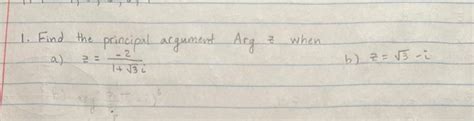 1. Find the principal argument Arg z when
a) z = -2 / (1 + √3 i)    b) z = √3 - i